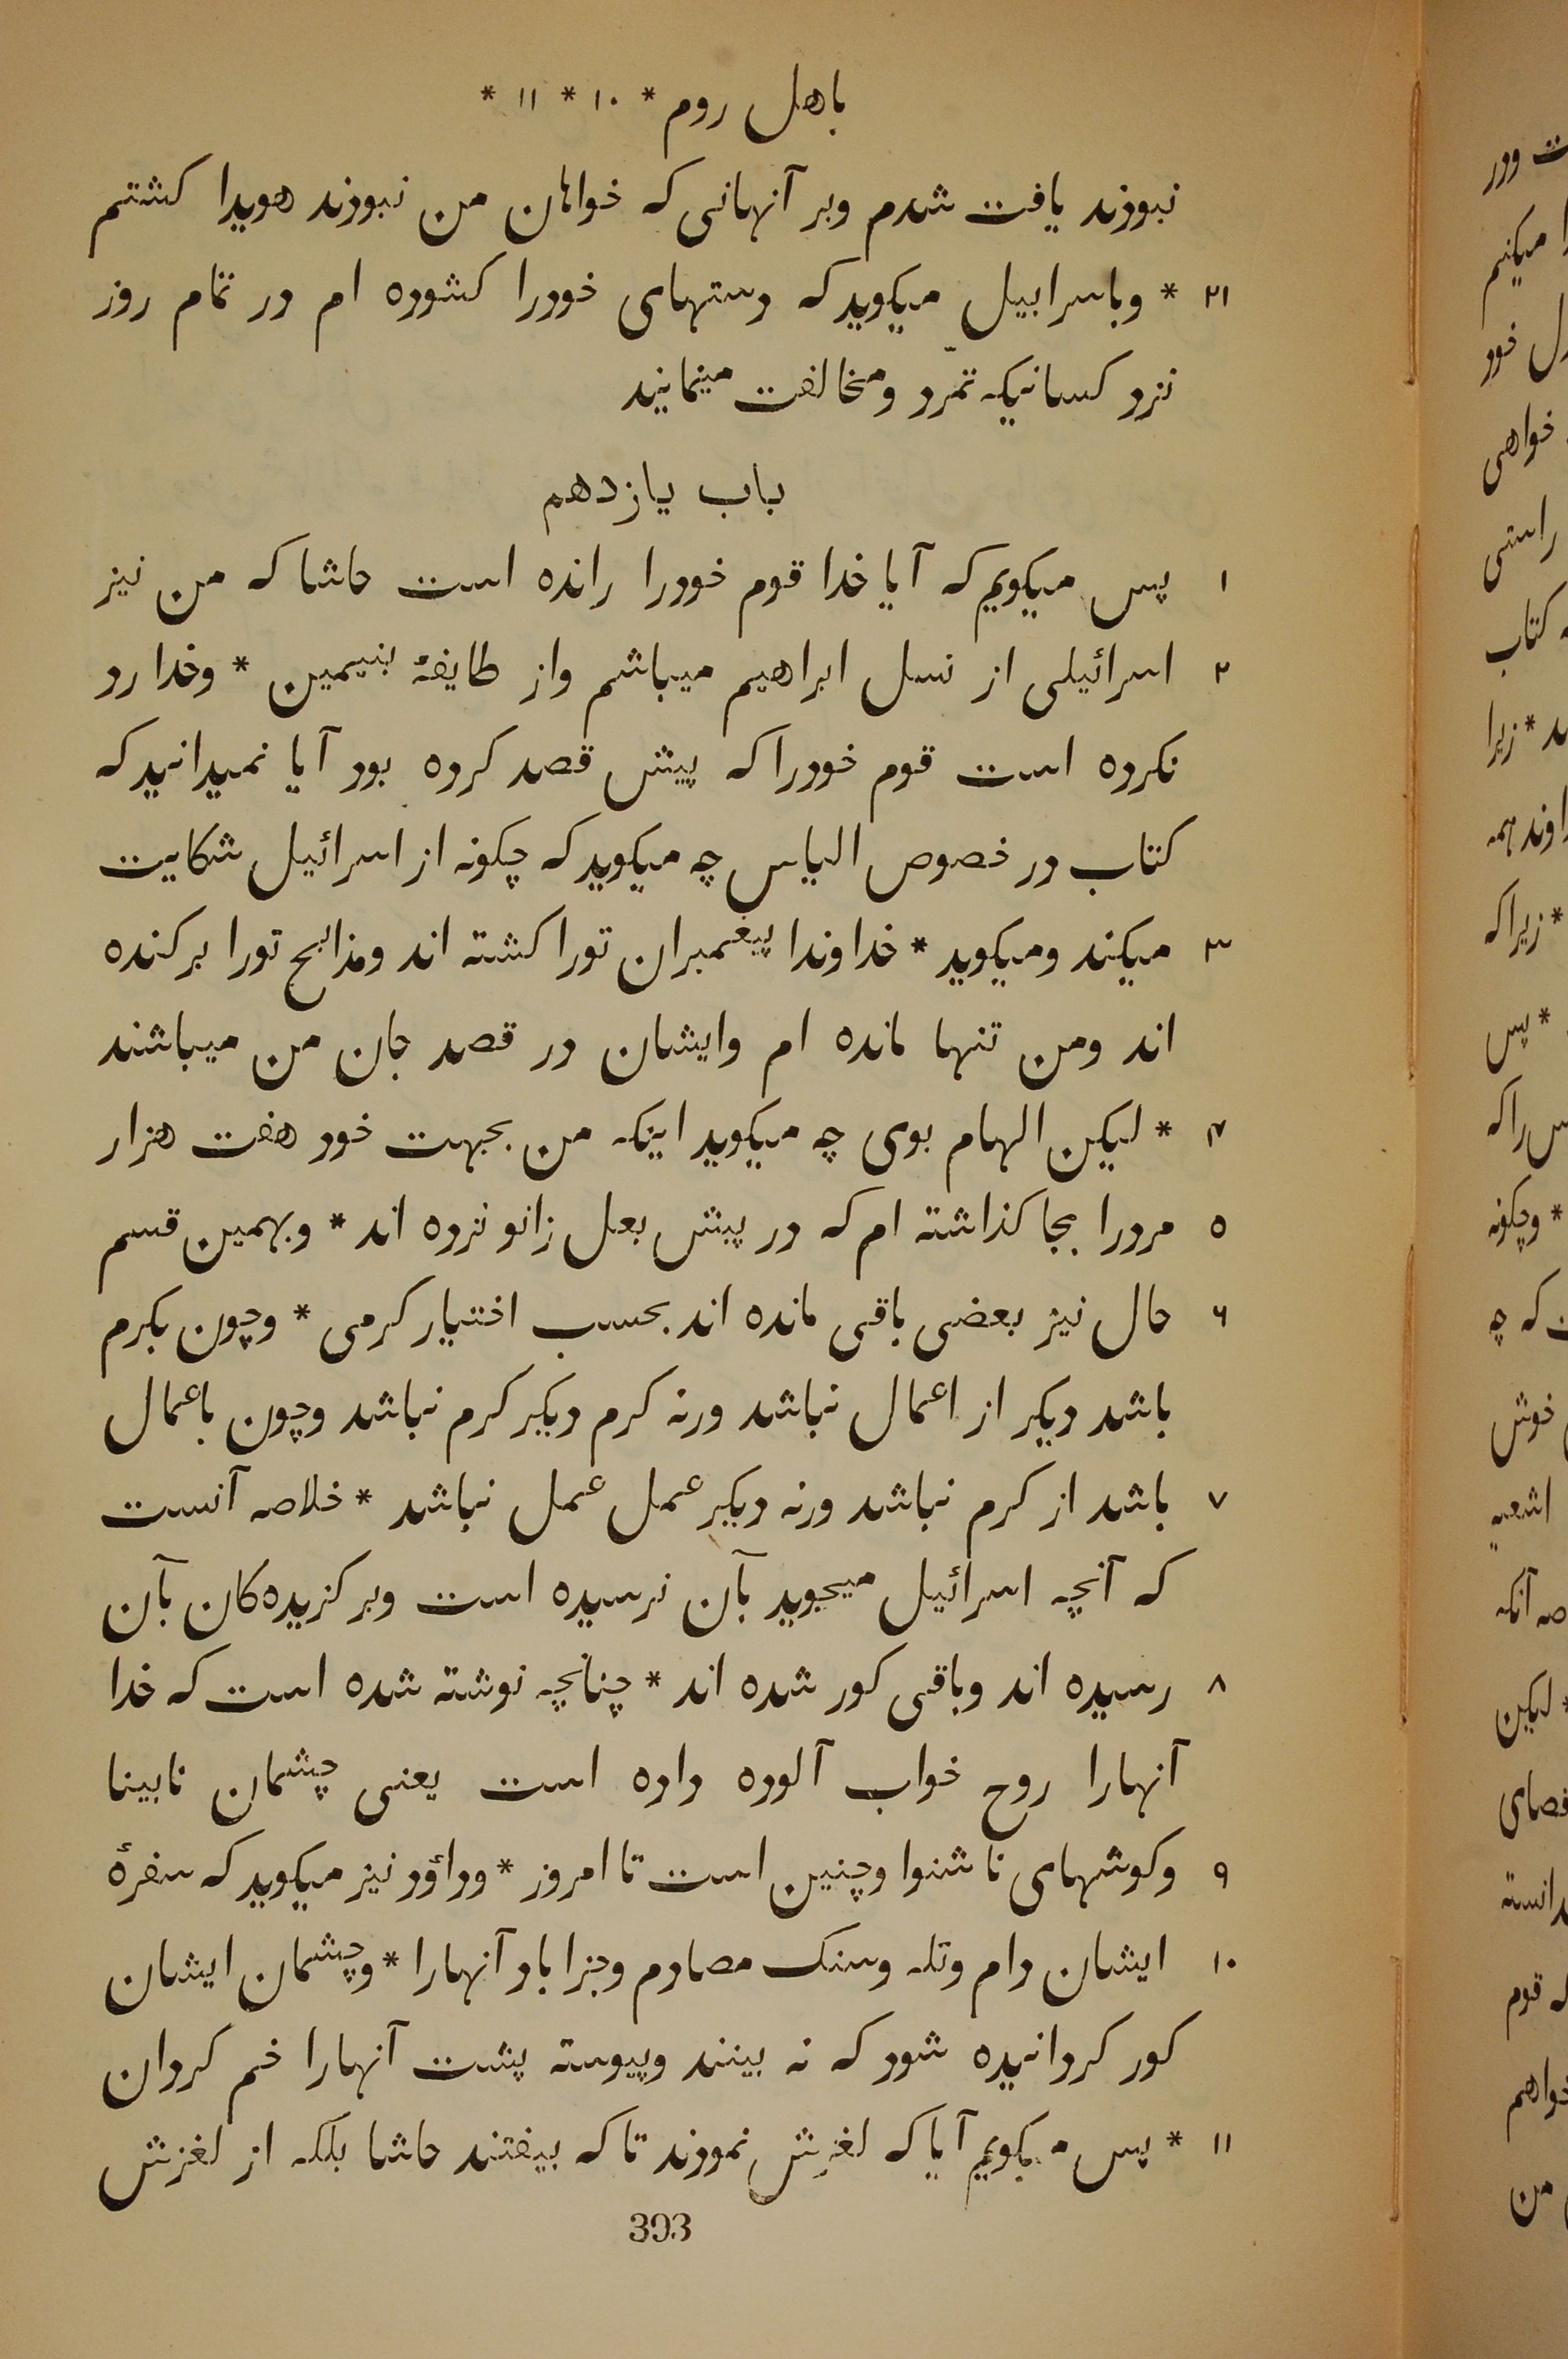 باهل روم * ۱۰ * ۱۱ *
نبودند یافت شدم وبر آنهانی که خواهان من نبودند هویدا کشتم
۲۱ * وباسرابیل میکوید که دستهای خودرا کشوده ام در تمام روز
نزد کسانیکه تمرّد ومخالفت مینمایند
باب یازدهم
۱ پس میکویم که آیا خدا قوم خودرا رانده است حاشا که من نیز
۲ اسرائیلی از نسل ابراهیم میباشم واز طایفهٔ بنیمین * وخدا رد
نکرده است قوم خودرا که پیش قصد کرده بود آیا نمیدانید که
کتاب در خصوص الیاس چه میکوید که چکونه از اسرائیل شکایت
۳ میکند ومیکوید * خداوندا پیغمبران تورا کشته اند ومذابح تورا برکنده
اند ومن تنها مانده ام وایشان در قصد جان من میباشند
۴ * لیکن الهام بوی چه میکوید اینکه من بجهت خود هفت هزار
۵ مردرا بجا کذاشته ام که در پیش بعل زانو نزده اند * وبهمین قسم
۶ حال نیز بعضی باقی مانده اند بحسب اختیار کرمی * وچون بکرم
باشد دیکر از اعمال نباشد ورنه کرم دیکر کرم نباشد وچون باعمال
۷ باشد از کرم نباشد ورنه دیکر عمل عمل نباشد * خلاصه آنست
که آنچه اسرائیل میجوید بآن نرسیده است وبر کزیده‌کان بآن
۸ رسیده اند وباقی کور شده اند * چنانچه نوشته شده است که خدا
آنهارا روح خواب آلوده داده است یعنی چشمان نابینا
۹ وکوشهای ناشنوا وچنین است تا امروز * وداؤد نیز میکوید که سفرهٔ
۱۰ ایشان دام وتله وسنک مصادم وجزا باد آنهارا * وچشمان ایشان
کور کردانیده شود که نه بینند وپیوسته پشت آنهارا خم کردان
۱۱ * پس میکویم آیا که لغزش نمودند تا که بیفتند حاشا بلکه از لغزش
393